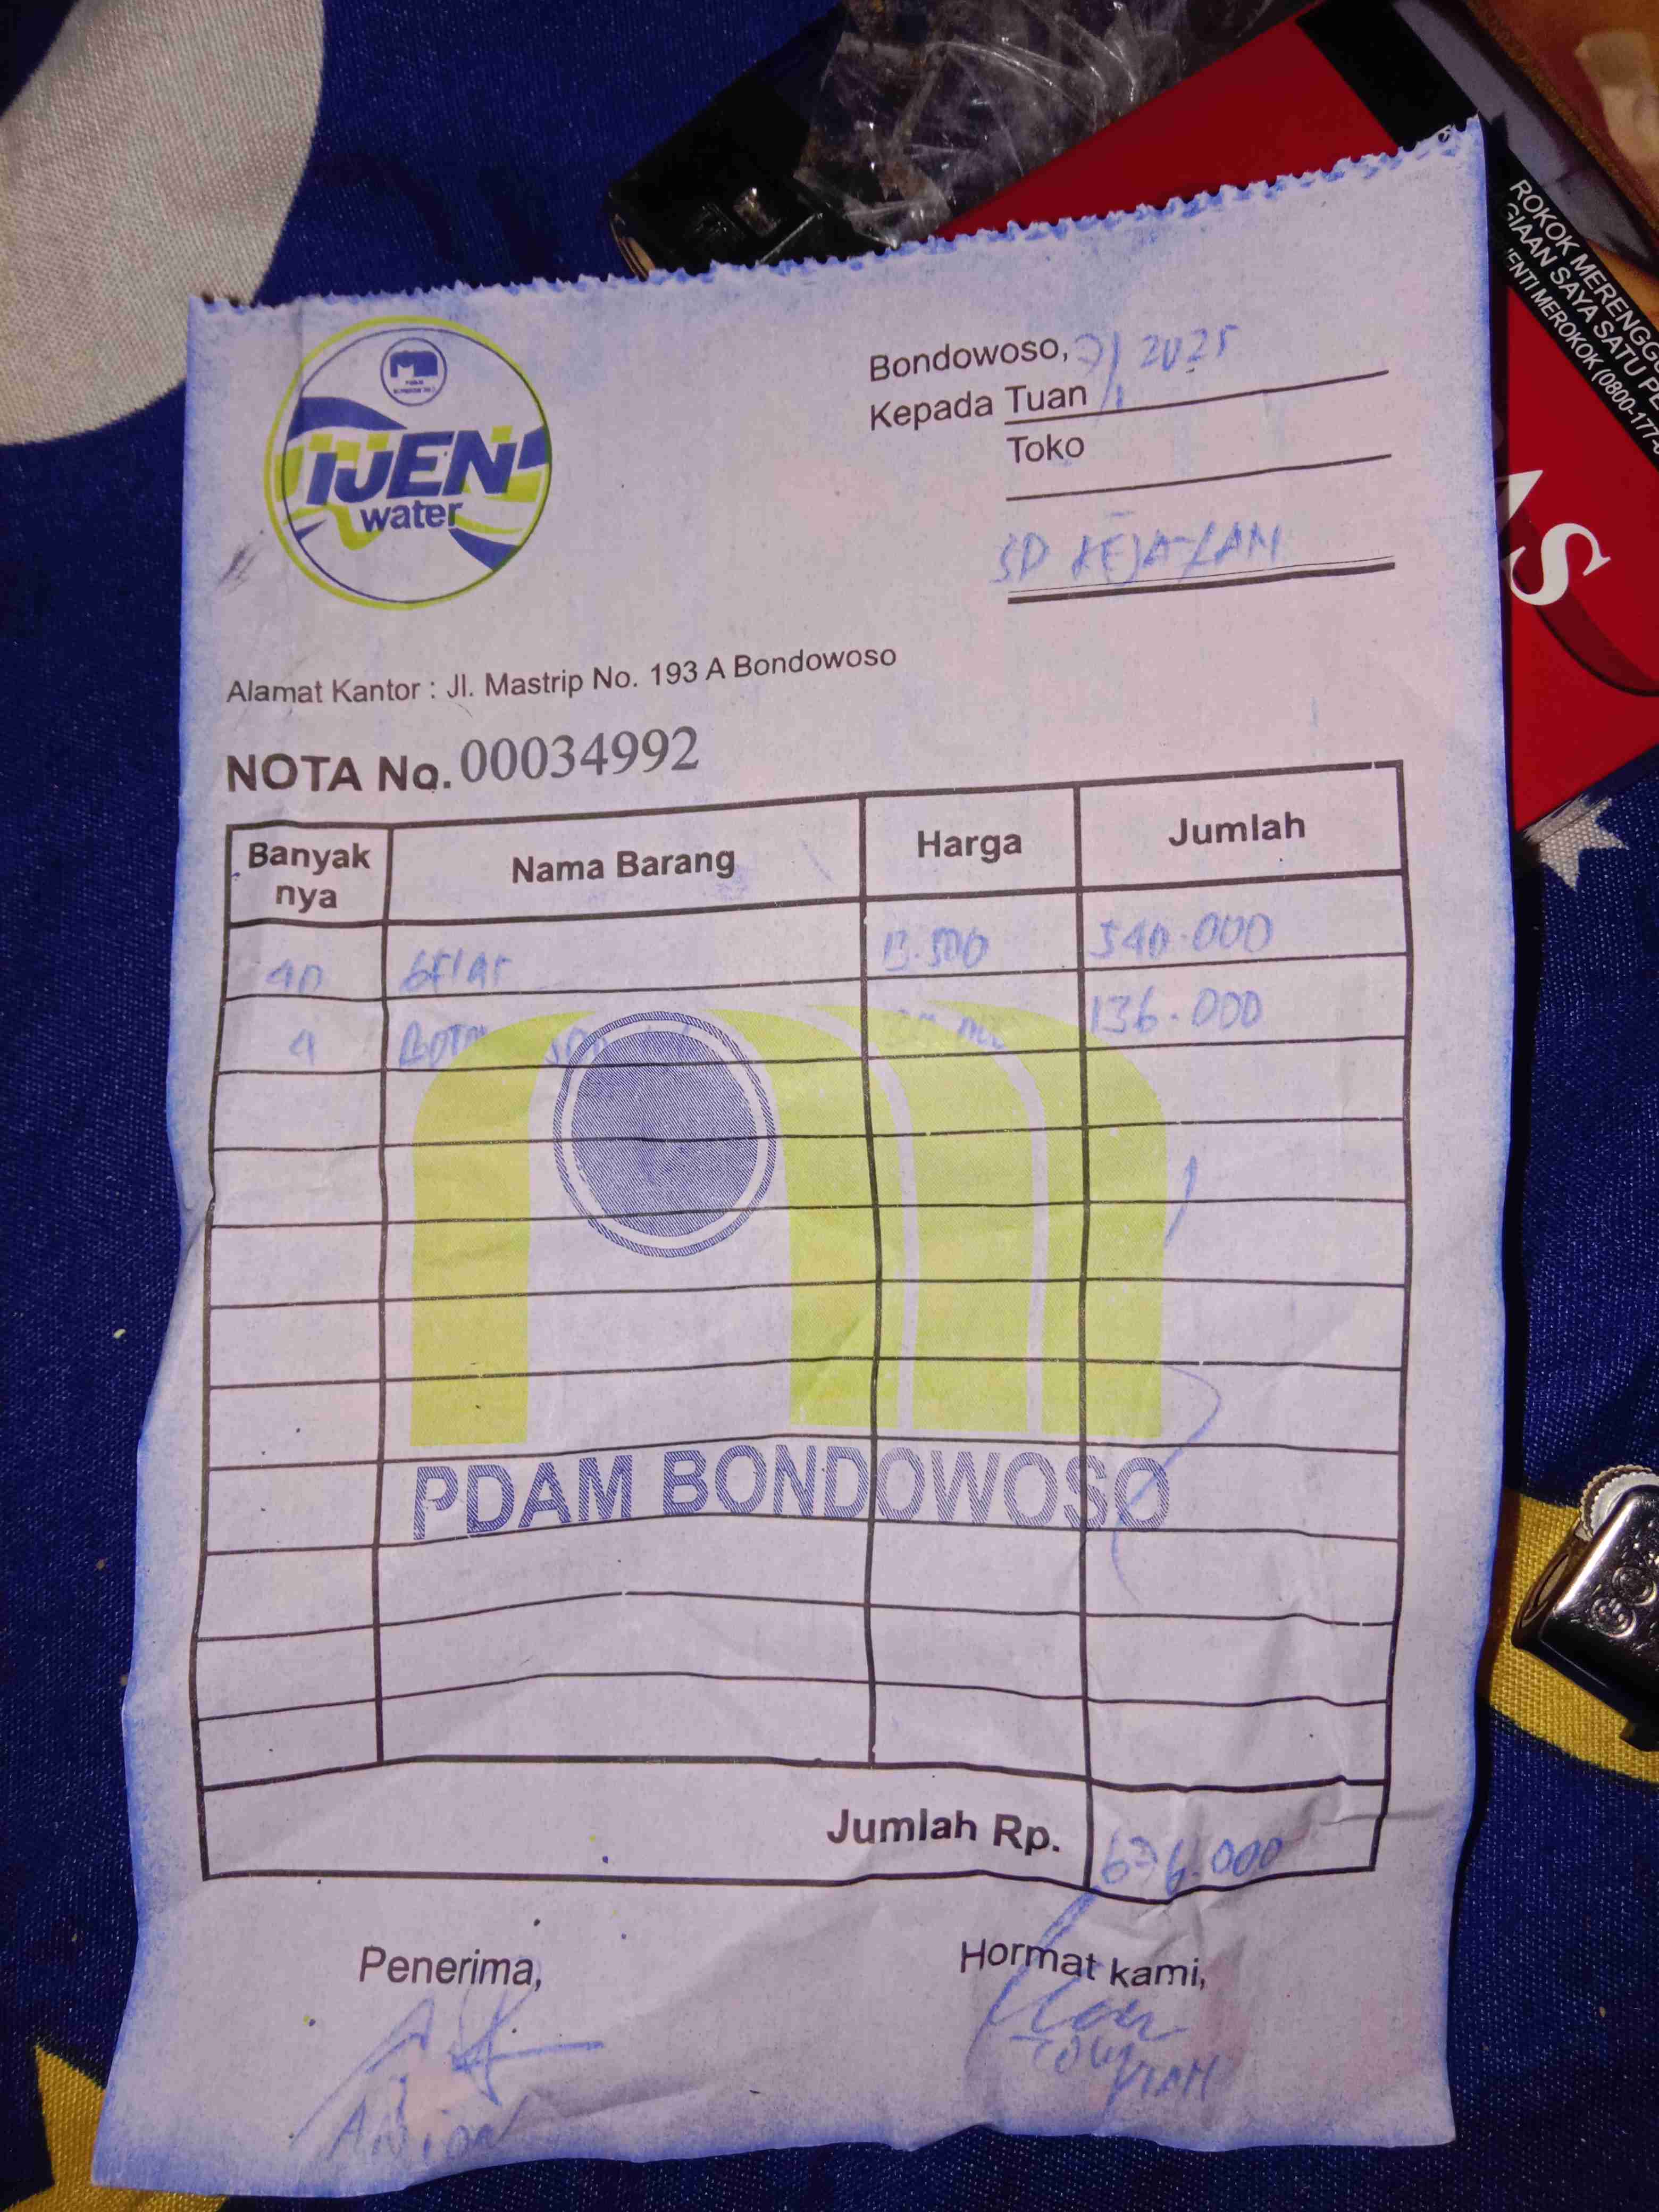 IJEN
water
Bondowoso, 7/1 2025
Kepada Tuan
Toko
SD KEJAYAN
Alamat Kantor : Jl. Mastrip No. 193 A Bondowoso
NOTA No. 00034992
Banyak nya Nama Barang Harga Jumlah
40 GELAS 13.500 540.000
4 BOTOL 136.000
PDAM BONDOWOSO
Jumlah Rp. 676.000
Penerima,
Hormat kami,
ROKOK MERENGGU
GIAAN SAYA SATU PE
ENTI MEROKOK (0800-177-6
AS